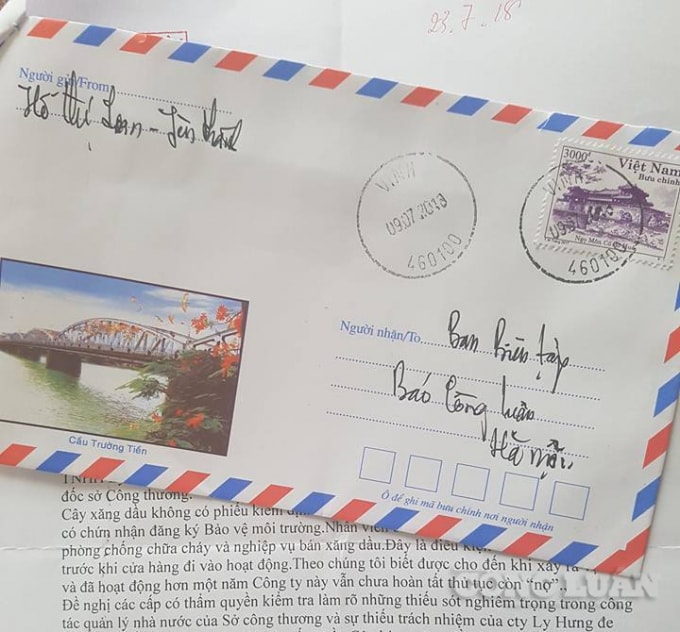 23.7.18
Người gửi/From
Hồ Thị Lan - Yên Thành
VINH
09.07.2018
460100
3000đ
Việt Nam
Bưu chính
VINH
09.07
460100
Ngọ Môn
Người nhận/To
Ban Biên tập
Báo Công luận
Hà Nội
Cầu Trường Tiền
Ô để ghi mã bưu chính nơi người nhận
đốc sở Công thương.
Cây xăng dầu không có phiếu kiểm
có chứng nhận đăng ký Bảo vệ môi trường.Nhân viên
phòng chống chữa cháy và nghiệp vụ bán xăng dầu.Đây là điều
trước khi cửa hàng đi vào hoạt động.Theo chúng tôi biết được cho đến khi xẩy ra
và đã hoạt động hơn một năm Công ty này vẫn chưa hoàn tất thủ tục còn “nợ”..
Đề nghị các cấp có thẩm quyền kiểm tra làm rõ những thiếu sót nghiêm trọng trong công
tác quản lý nhà nước của Sở công thương và sự thiếu trách nhiệm của cty Ly Hưng để
CÔNG LUẬN